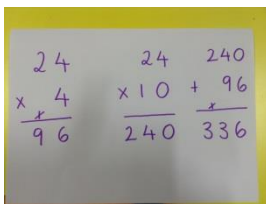 24
× 4
×
96
24
×10
240
240
+ 96
×
336